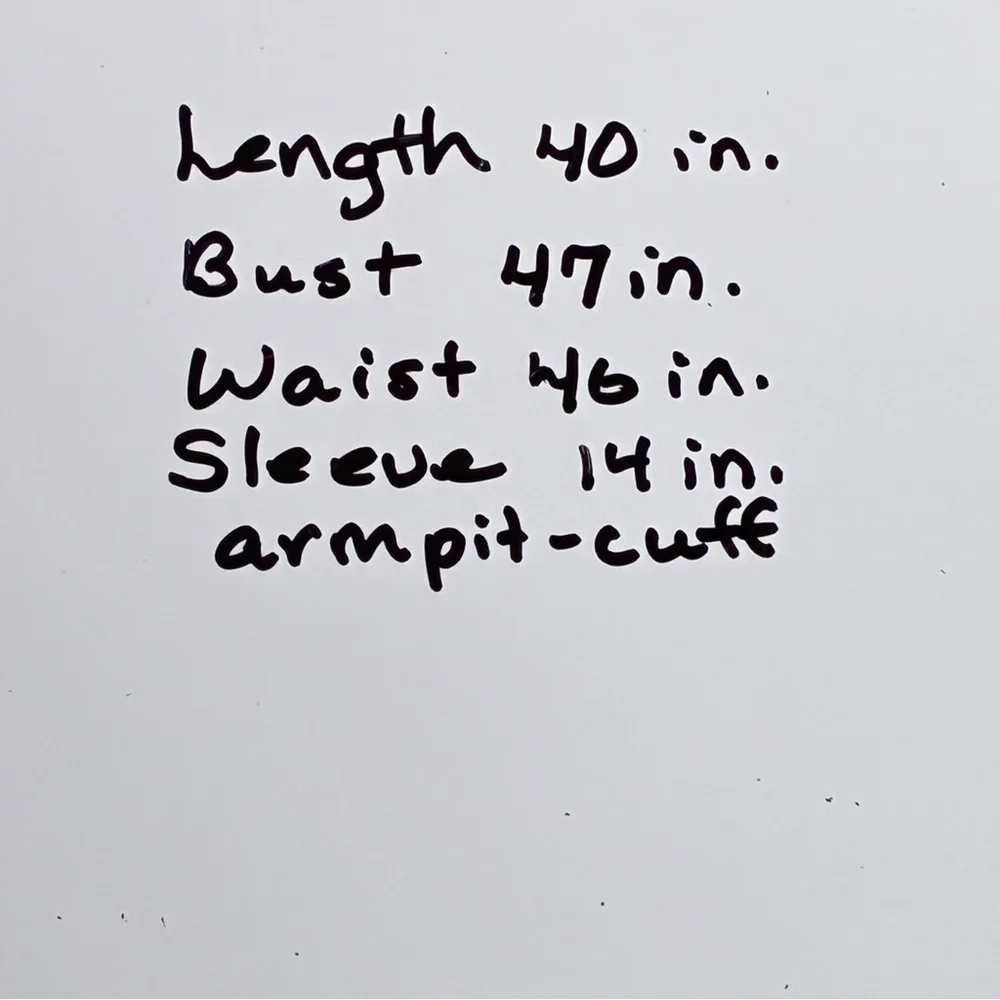 Length 40 in.
Bust 47 in.
Waist 46 in.
Sleeve 14 in.
armpit-cuff